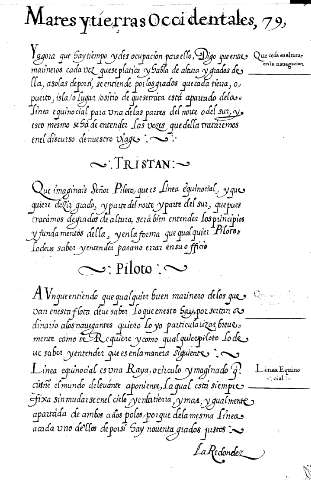 Mares y tierras Occidentales, 79,
Y agora que hay tiempo y desocupacion para ello, Digo que entre
marineros cada vez que se platica y habla de altura y grados de
lla, a solas de por si, se entiende por los grados que cada tierra, o
puerto, isla, o lugar, o sitio de que se trata está apartado de la
linea equinocial para una de las partes del norte o del sur, y
esto mesmo se ha de entender las vezes, que della trataremos
en el discurso de nuestro viage
Que cosa es altura
en la nauegacion.
TRISTAN:
Que imaginais Señor Piloto, que es Linea equinocial, y que
quiere dezir grado, y parte del norte y parte del sur, que pues
tratamos de grados de altura, será bien entender los principios
y fundamentos della, y en la forma que qualquier Piloto
lo deue saber y entender para no errar en su officio
: Piloto:
AVnque entiendo que qualquier buen marinero de los que
van en esta flota deue saber lo que en esto hay, por ser tan or
dinario a los nauegantes quiero lo yo particularizar breue
mente como se Requiere y como qual quier piloto lo de
ue saber y entender que es en la manera siguiente
Linea equinocial es una Raya, o circulo ymaginado q̃
ciñe el mundo de leuante a poniente, la qual está siempre
fixa sin mudarse en el cielo y en la tierra y mar, y igual mente
apartada de ambos a dos polos, porque de la mesma Linea
a cada uno dellos de por si hay nouenta grados justos
Linea Equino
cial.
La Redondez